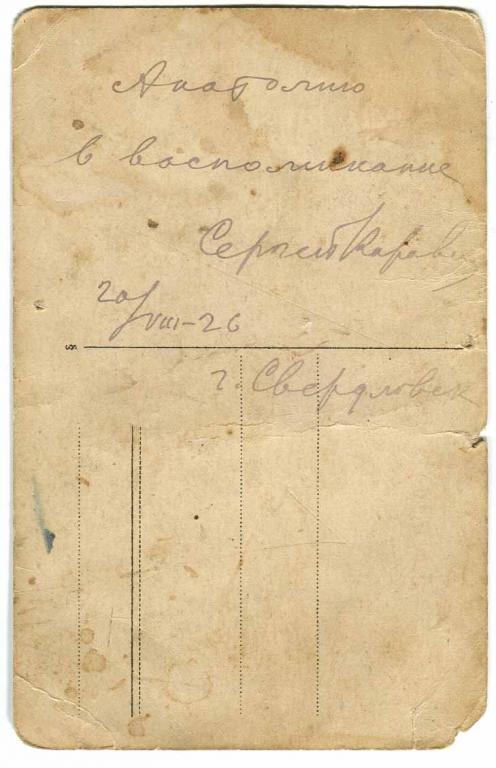 Анатолию
в воспоминание
Сергей
20/VIII-26
г. Свердловск